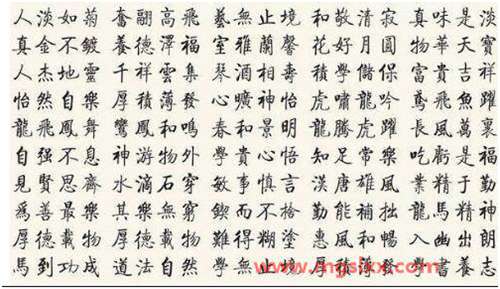 人淡如菊 奮翮高飛 藝無止境 和敬清寂 真味是淡
真金不鍍 養德澤福 室雅蘭馨 花好月圓 物華天寶
人杰地靈 千祥雲集 琴酒相壽 學儲保 富貴吉祥
怡然自樂 厚積薄發 心曠神怡 虎嘯龍吟 鳶飛魚躍
龍飛鳳舞 鸞鳳和鳴 春和景明 龍騰虎躍 長風萬裏
自强不息 神游物外 學貴心悟 知足常樂 吃虧是福
見賢思齊 水滴石穿 敏事慎言 漢唐雄風 業精于勤
爲善最樂 其樂無窮 鍥而不捨 勤能補拙 龍馬精神
厚德載物 厚德載物 難得糊塗 惠風和暢 入幽出朗
馬到功成 道法自然 學無止境 厚積薄發 學書養志